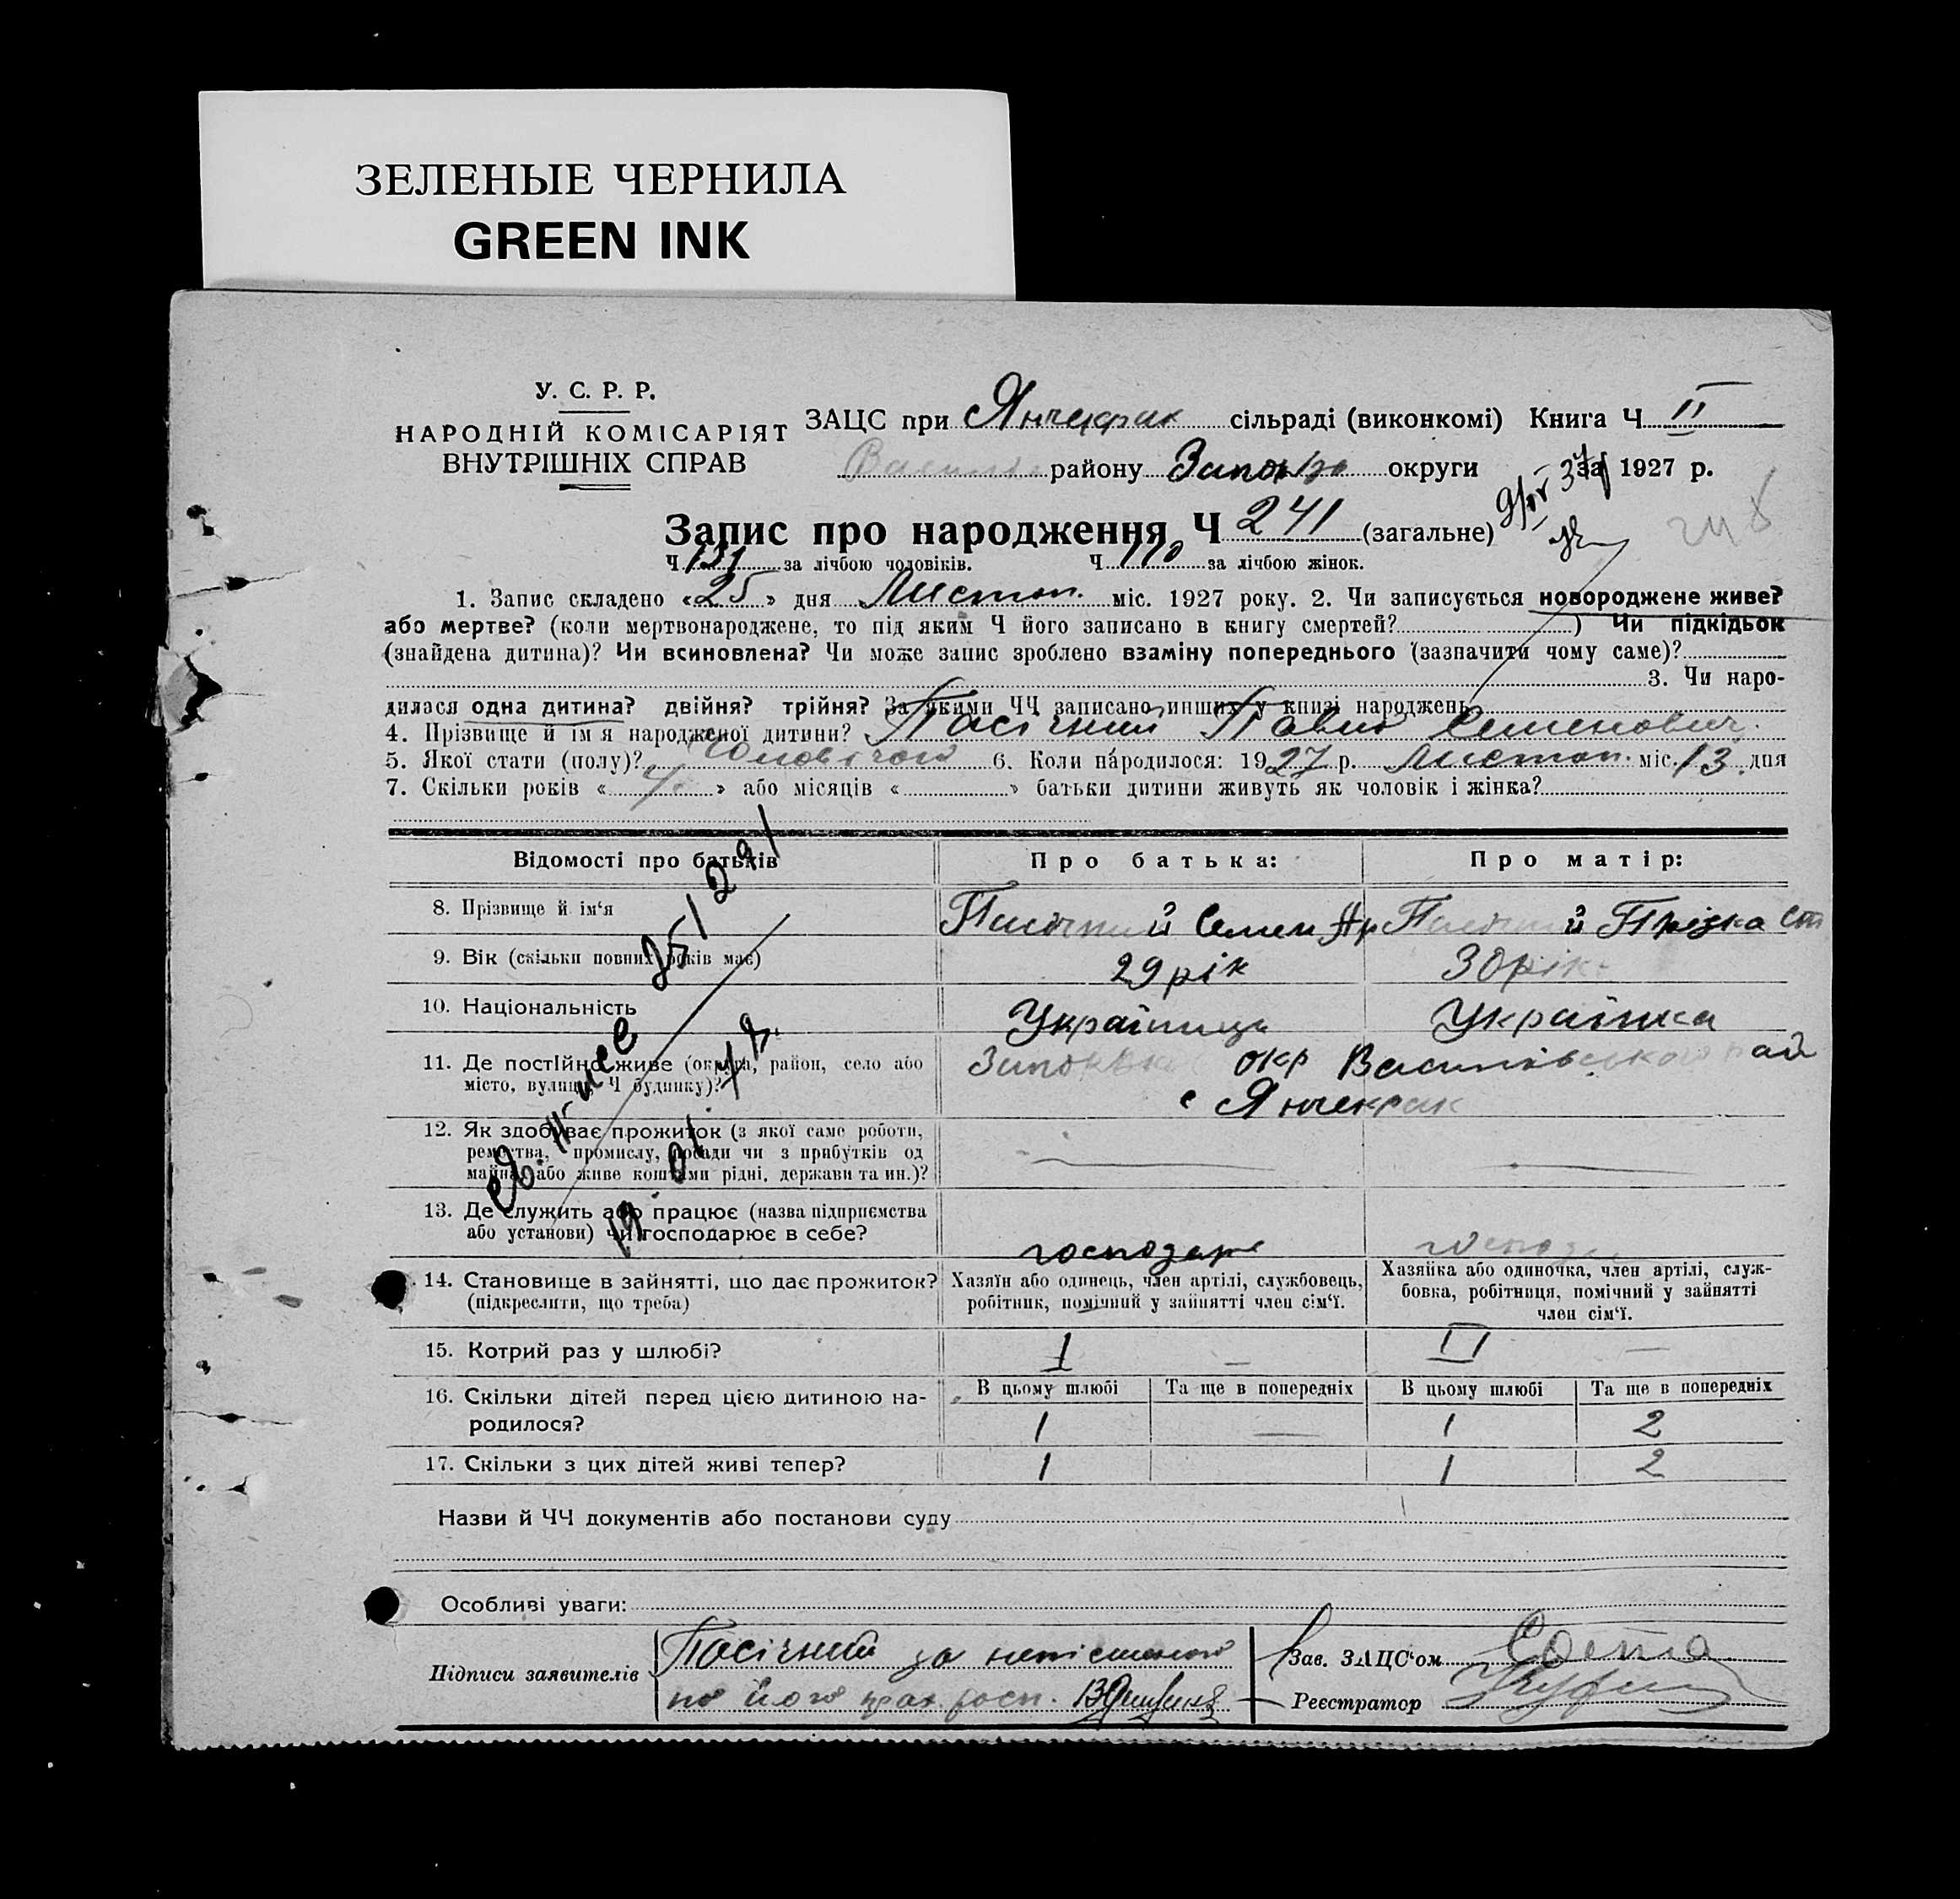 ЗЕЛЕНЫЕ ЧЕРНИЛА
GREEN INK
У. С. Р. Р.
НАРОДНІЙ КОМІСАРІЯТ
ВНУТРІШНІХ СПРАВ
ЗАЦС при Янчекрак сільраді (виконкомі) Книга Ч II
району округи за 1927 р.
Запис про народження Ч 241 (загальне)
Ч 131 за лічбою чоловіків. Ч 110 за лічбою жінок.
1. Запис складено «25» дня Листоп. міс. 1927 року. 2. Чи записується новороджене живе?
або мертве? (коли мертвонароджене, то під яким Ч його записано в книгу смертей?) Чи підкідьок
(знайдена дитина)? Чи всиновлена? Чи може запис зроблено взаміну попереднього (зазначити чому саме)?
3. Чи наро-
дилася одна дитина? двійня? трійня? За якими ЧЧ записано инших у книзі народжень
4. Прізвище й ім'я народженої дитини? Пасічний Павло Семенович.
5. Якої стати (полу)? 6. Коли народилося: 1927 р. Листоп. міс. 13 дня
7. Скільки років « 4 » або місяців « » батьки дитини живуть як чоловік і жінка?
Відомості про батьків
Про батька:
Про матір:
8. Прізвище й ім'я
Пасічний Семен Пасічний
9. Вік (скільки повних років має)
29 рік 30 рік
10. Національність
Українець Українка
11. Де постійно живе (округа, район, село або
місто, вулиця, Ч будинку)?
окр Василівського рай
с Янчекрак
12. Як здобуває прожиток (з якої саме роботи,
ремества, промислу, посади чи з прибутків од
майна, або живе коштами рідні, держави та ин.)?
13. Де служить або працює (назва підприємства
або установи) чи господарює в себе?
господарь
14. Становище в зайнятті, що дає прожиток?
(підкреслити, що треба)
Хазяїн або одинець, член артілі, службовець,
робітник, помічний у зайнятті член сім'ї.
Хазяйка або одиночка, член артілі, служ-
бовка, робітниця, помічний у зайнятті
член сім'ї.
15. Котрий раз у шлюбі?
I — II —
16. Скільки дітей перед цією дитиною на-
родилося?
В цьому шлюбі Та ще в попередніх В цьому шлюбі Та ще в попередніх
1 — 1 2
17. Скільки з цих дітей живі тепер?
1 1 2
Назви й ЧЧ документів або постанови суду
Особливі уваги:
Підписи заявителів
Пасічний за
по його
Зав. ЗАЦС'ом
Реєстратор